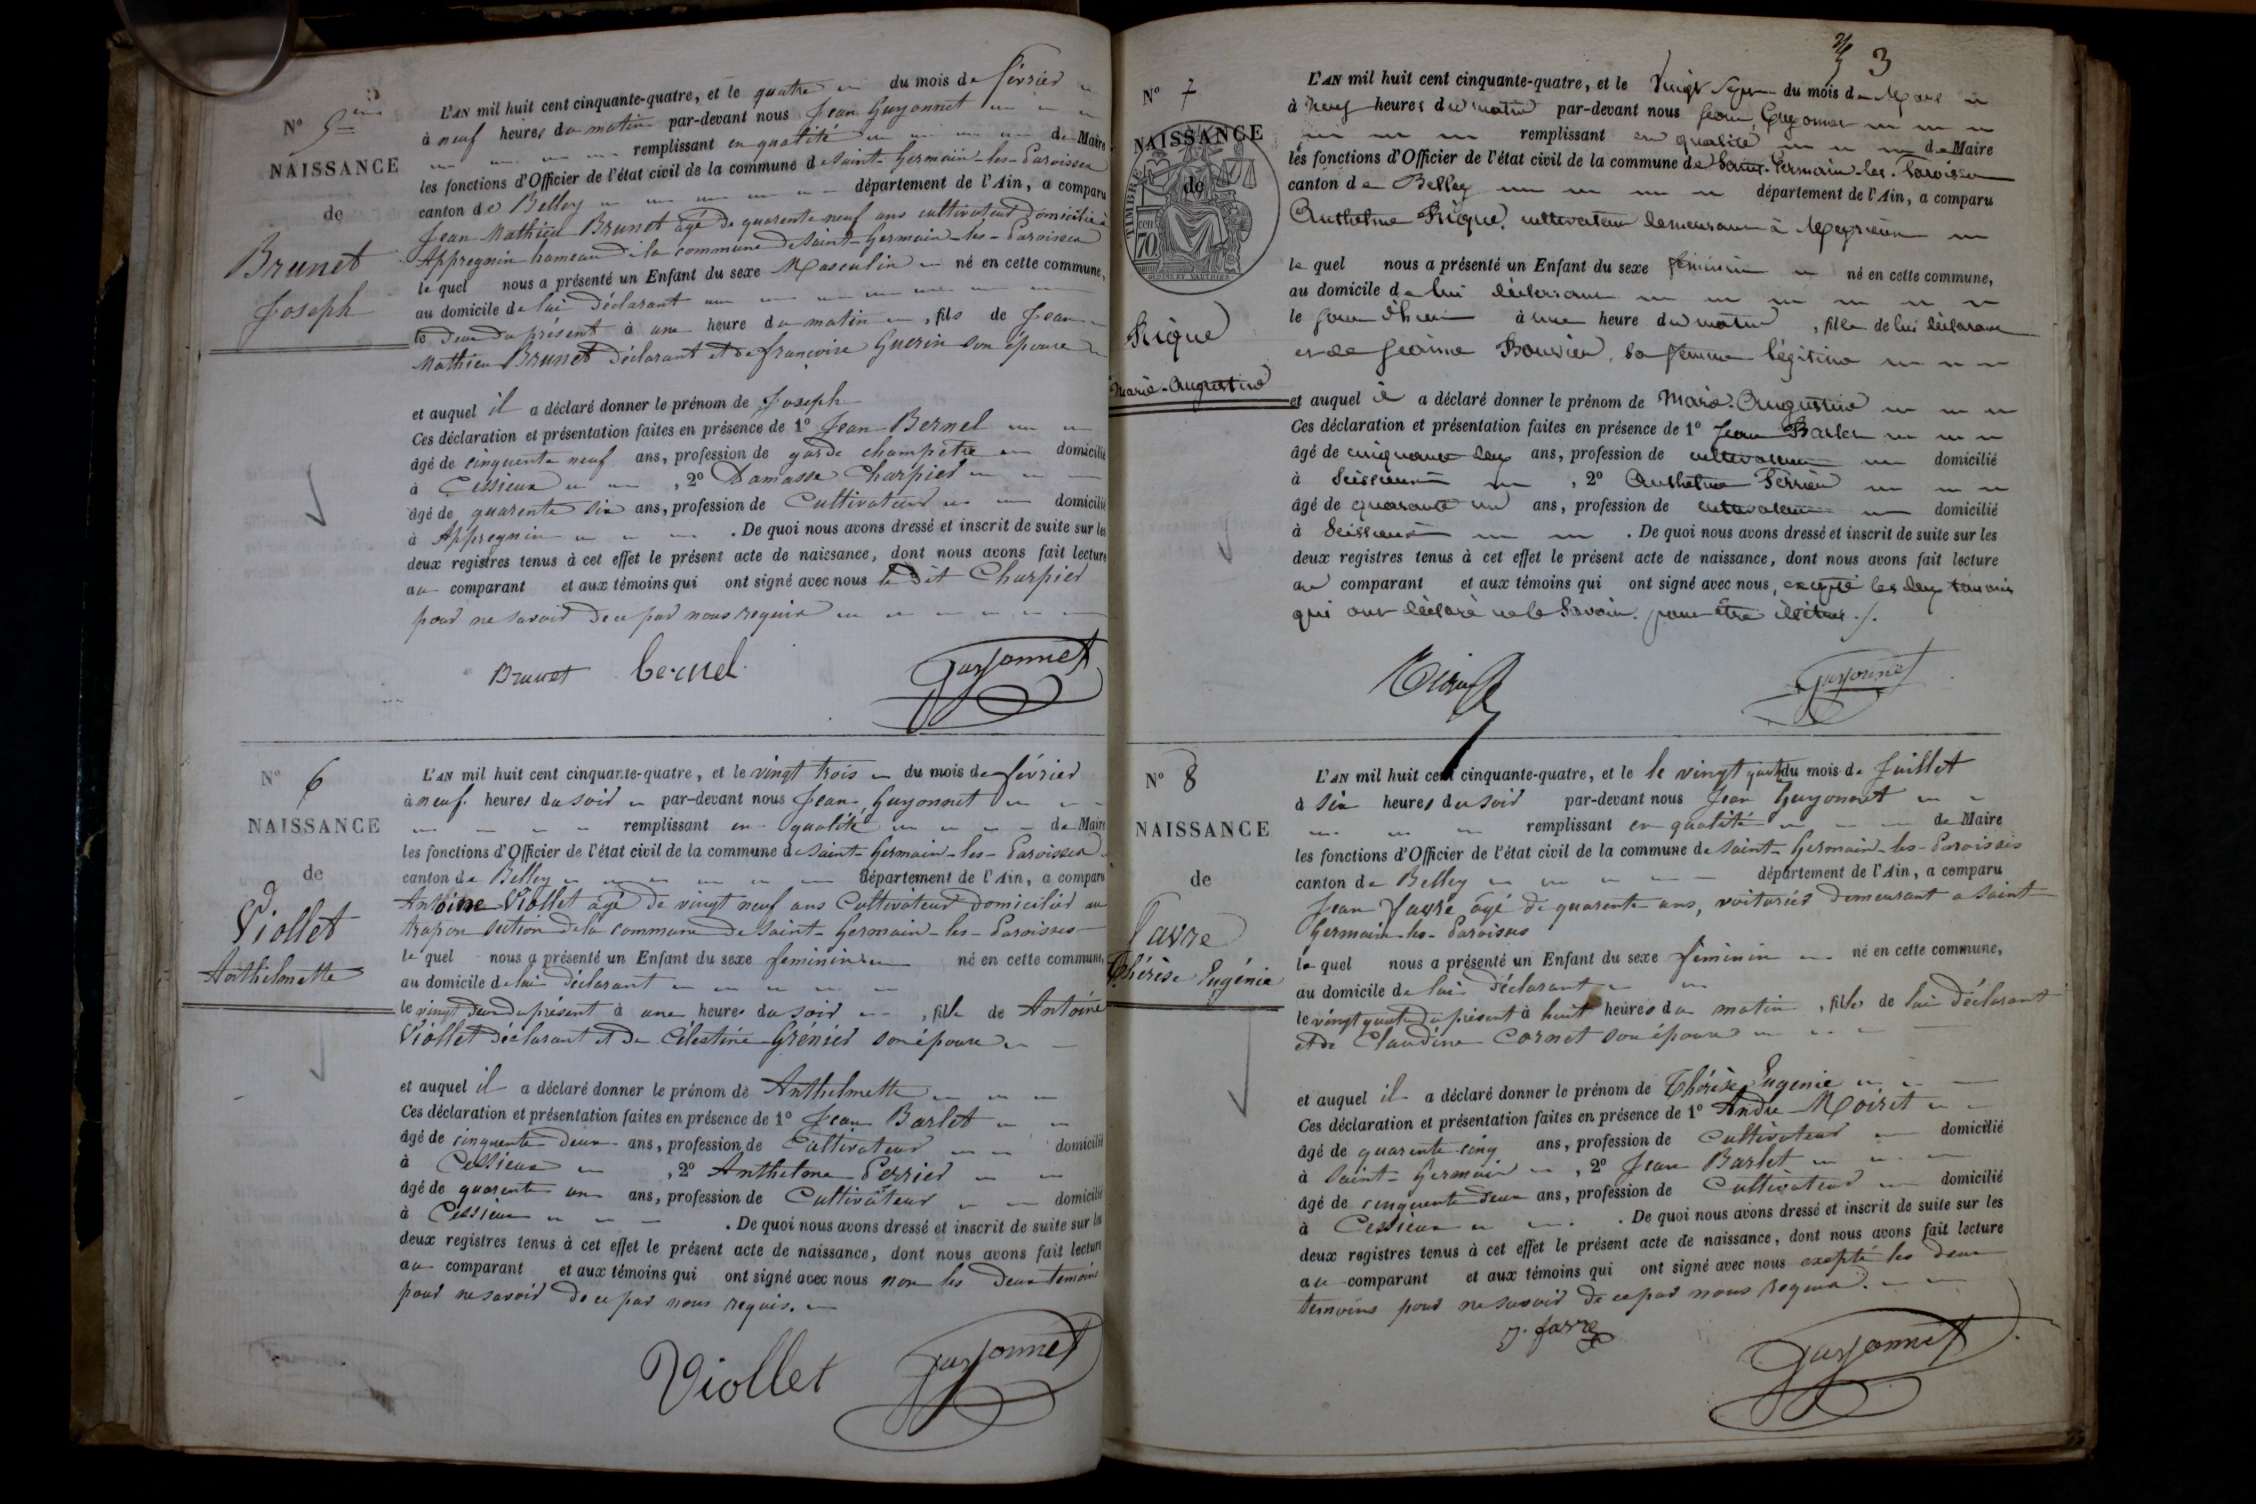 5
N° 5ème
NAISSANCE
de
Brunet
Joseph
L'AN mil huit cent cinquante-quatre, et le quatre du mois de février
à neuf heures du matin par-devant nous Jean Guyonnet
remplissant en qualité de Maire
les fonctions d'Officier de l'état civil de la commune de Saint-Germain-les-Paroisses
canton de Belley département de l'Ain, a comparu
Jean Mathieu Brunet agé de quarente neuf ans cultivateur domicilié à
Appregnin hameau de la commune de Saint-Germain-les-Paroisses
le quel nous a présenté un Enfant du sexe Masculin né en cette commune,
au domicile de lui déclarant
le deux du présent à une heure du matin, fils de Jean
Mathieu Brunet déclarant et de françoise Guerin son épouse
et auquel il a déclaré donner le prénom de Joseph
Ces déclaration et présentation faites en présence de 1° Jean Bernel
âgé de cinquente neuf ans, profession de garde champêtre domicilié
à Cessieux, 2° Damasse Charpiel
âgé de quarente six ans, profession de Cultivateur domicilié
à Appregnin. De quoi nous avons dressé et inscrit de suite sur les
deux registres tenus à cet effet le présent acte de naissance, dont nous avons fait lecture
au comparant et aux témoins qui ont signé avec nous le dit Charpiel
pour ne savoir de ce par nous requis
Brunet bernel Guyonnet
N° 6
NAISSANCE
de
Viollet
Anthelmette
L'AN mil huit cent cinquante-quatre, et le vingt trois du mois de février
à neuf heures du soir par-devant nous Jean Guyonnet
remplissant en qualité de Maire
les fonctions d'Officier de l'état civil de la commune de Saint-Germain-les-Paroisses
canton de Belley département de l'Ain, a comparu
Antoine Viollet agé de vingt neuf ans Cultivateur domicilié au
trapon section de la commune de Saint-Germain-les-Paroisses
le quel nous a présenté un Enfant du sexe féminin né en cette commune,
au domicile de lui déclarant
le vingt deux du présent à une heures du soir, fille de Antoine
Viollet déclarant et de Célestine Grénier son épouse
et auquel il a déclaré donner le prénom de Anthelmette
Ces déclaration et présentation faites en présence de 1° Jean Barlet
âgé de cinquente deux ans, profession de Cultivateur domicilié
à Cessieux, 2° Anthelme Perrier
âgé de quarente un ans, profession de Cultivateur domicilié
à Cessieux. De quoi nous avons dressé et inscrit de suite sur les
deux registres tenus à cet effet le présent acte de naissance, dont nous avons fait lecture
au comparant et aux témoins qui ont signé avec nous non les deux temoins
pour ne savoir de ce par nous requis.
Viollet Guyonnet
3
N° 7
NAISSANCE
de
TIMBRE
70
Rique
Marie-Augustine
L'AN mil huit cent cinquante-quatre, et le Vingt Sept du mois de Mars
à neuf heures du matin par-devant nous Jean Guyonnet
remplissant en qualité de Maire
les fonctions d'Officier de l'état civil de la commune de Saint-Germain-les-Paroisses
canton de Belley département de l'Ain, a comparu
Anthelme Rique, cultivateur demeurant à Meyrieu
le quel nous a présenté un Enfant du sexe féminin né en cette commune,
au domicile de lui déclarant
le jour d'hier à une heure du matin, fille de lui déclarant
et de Bouvier, sa femme légitime
et auquel il a déclaré donner le prénom de Marie-Augustine
Ces déclaration et présentation faites en présence de 1° Jean Barlet
âgé de cinquante deux ans, profession de cultivateur domicilié
à Seissieux, 2° Anthelme Perrier
âgé de quarante un ans, profession de cultivateur domicilié
à Seissieux. De quoi nous avons dressé et inscrit de suite sur les
deux registres tenus à cet effet le présent acte de naissance, dont nous avons fait lecture
au comparant et aux témoins qui ont signé avec nous, excepté les deux témoins
qui ont déclaré ne le savoir, pour être illettrés ./.
Guyonnet
N° 8
NAISSANCE
de
Favre
Thérèse Eugénie
L'AN mil huit cent cinquante-quatre, et le le vingt quatre du mois de Juillet
à six heures du soir par-devant nous Jean Guyonnet
remplissant en qualité de Maire
les fonctions d'Officier de l'état civil de la commune de Saint-Germain-les-Paroisses
canton de Belley département de l'Ain, a comparu
Jean Favre âgé de quarente ans, voiturier demeurant a Saint
Germain-les-Paroisses
le quel nous a présenté un Enfant du sexe féminin né en cette commune,
au domicile de lui déclarant
le vingt quatre du présent à huit heures du matin, fille de lui déclarant
et de Claudine Cornet son épouse
et auquel il a déclaré donner le prénom de Thérèse Eugenie
Ces déclaration et présentation faites en présence de 1° Andre Moiret
âgé de quarente cinq ans, profession de Cultivateur domicilié
à Saint-Germain, 2° Jean Barlet
âgé de cinquente deux ans, profession de Cultivateur domicilié
à Cessieux. De quoi nous avons dressé et inscrit de suite sur les
deux registres tenus à cet effet le présent acte de naissance, dont nous avons fait lecture
au comparant et aux témoins qui ont signé avec nous excepté les deux
temoins pour ne savoir de ce par nous requis.
J. favre Guyonnet